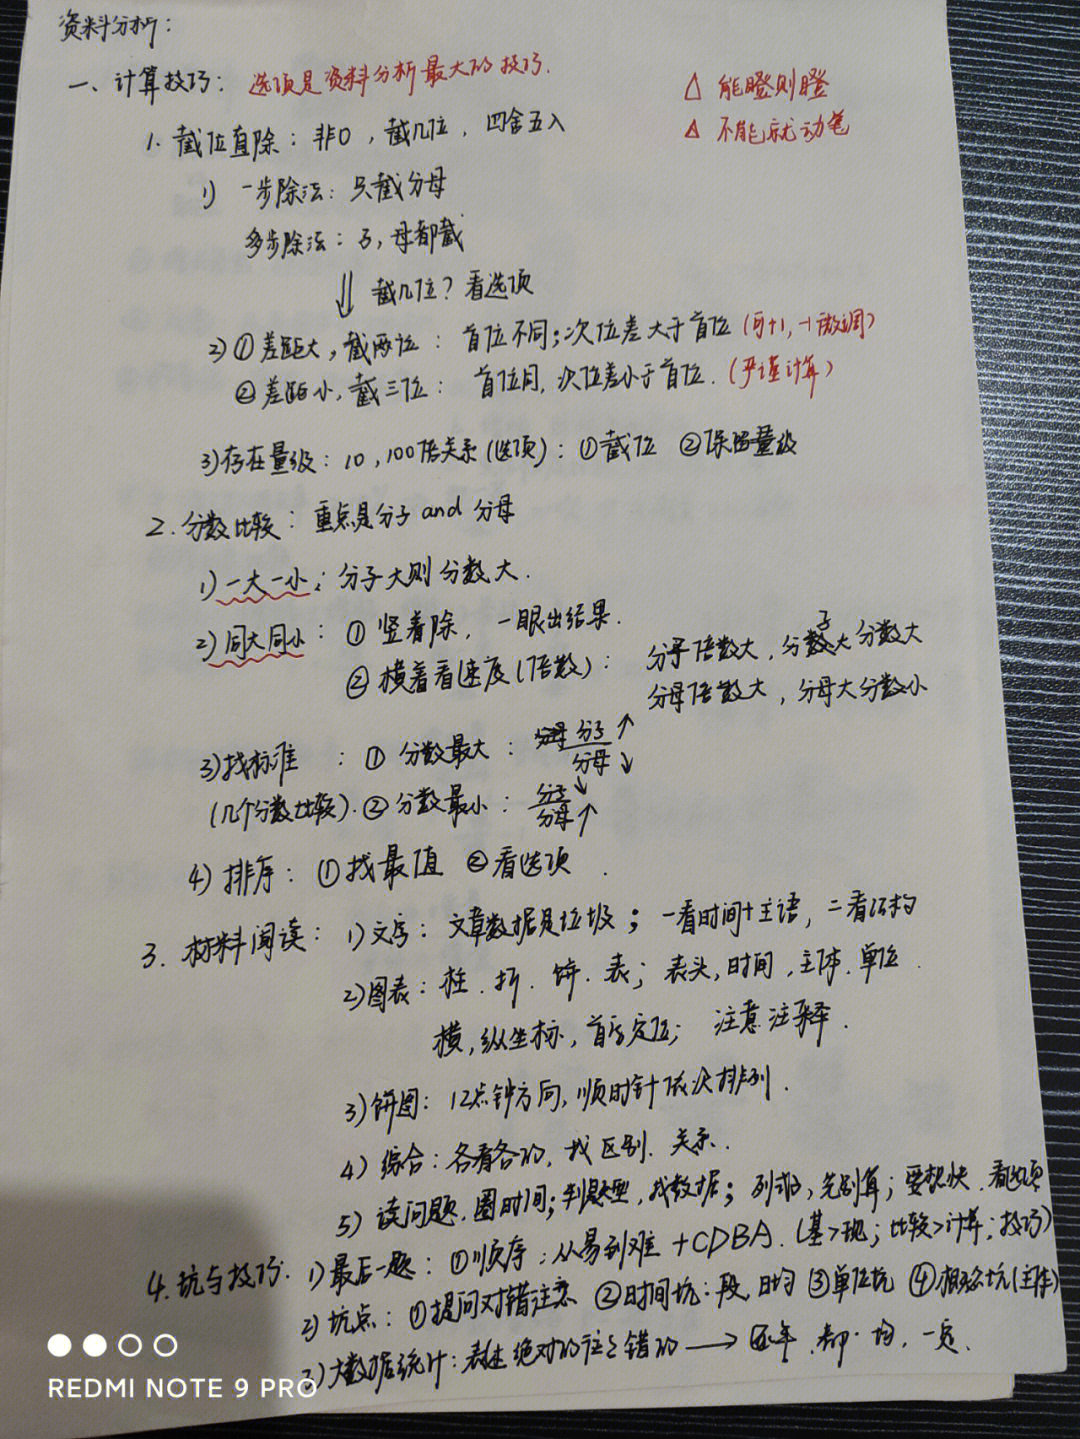 资料分析：
一、计算技巧：选项是资料分析最大的技巧.
△ 能瞪则瞪
△ 不能就动笔
1. 截位直除：非0，截几位，四舍五入
1) 一步除法：只截分母
多步除法：子，母都截
⇓ 截几位？看选项
2) ①差距大，截两位：首位不同；次位差大于首位（可+1，-1微调）
②差距小，截三位：首位同，次位差小于首位.（严谨计算）
3)存在量级：10，100倍关系(选项)：①截位 ②保留量级
2. 分数比较：重点是分子and分母
1)一大一小：分子大则分数大.
2)同大同小：①竖着除，一眼出结果.
②横着看速度(倍数)：分子倍数大，分子大分数大
分母倍数大，分母大分数小
3)找标准：①分数最大：分子↑
分母↓
(几个分数比较).②分数最小：分子↓
分母↑
4)排序：①找最值 ②看选项.
3. 材料阅读：1)文字：文章数据是垃圾；一看时间+主语，二看结构
2)图表：柱.折.饼.表；表头，时间，主体.单位.
横，纵坐标，首尾定位；注意注释.
3)饼图：12点钟方向，顺时针依次排列.
4)综合：各看各的，找区别.关系.
5)读问题.圈时间；判题型，找数据；列式子，先别算；要想快.看选项
4.坑与技巧.1)最后一题：①顺序：从易到难+CDBA.(基>现；比较>计算；技巧)
2)坑点：①提问对错注意 ②时间坑：段，日均 ③单位坑 ④相近坑(主体)
3)大数据统计：表述绝对的往往错的→逐年.都.均.一定.
REDMI NOTE 9 PRO